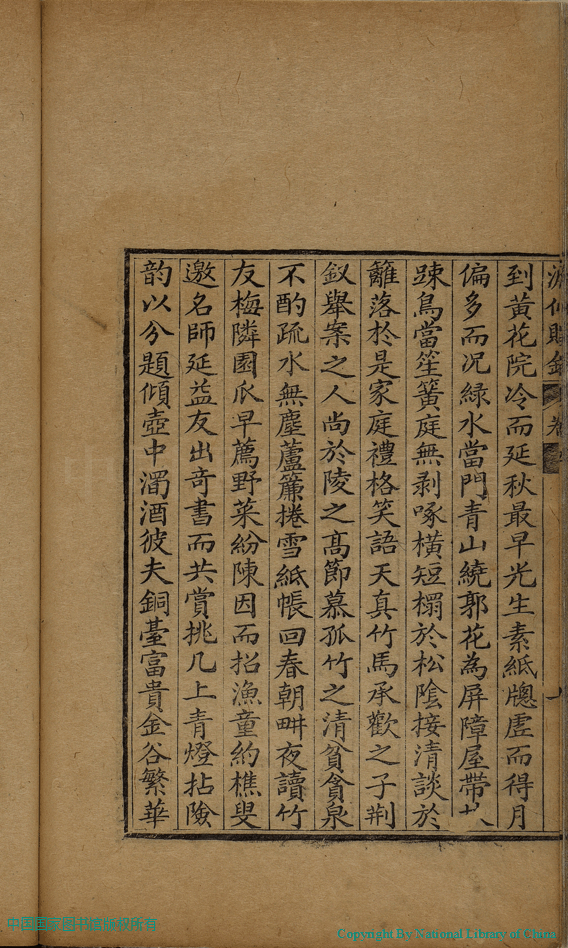 到黃花院冷而延秋最早光生素紙牕虛而得月
偏多而況綠水當門青山繞郭花為屏障屋帶
踈鳥當笙簧庭無剥啄橫短榻於松陰接清談於
籬落於是家庭禮格笑語天真竹馬承歡之子荆
釵舉案之人尚於陵之高節慕孤竹之清貧貪泉
不酌疏水無塵蘆簾捲雪紙帳回春朝畊夜讀竹
友梅隣園瓜早薦野菜紛陳因而招漁童約樵叟
邀名師延益友出奇書而共賞挑几上青燈拈險
韵以分題傾壺中濁酒彼夫銅臺富貴金谷繁華
中国国家图书馆版权所有
Copyright By National Library of China